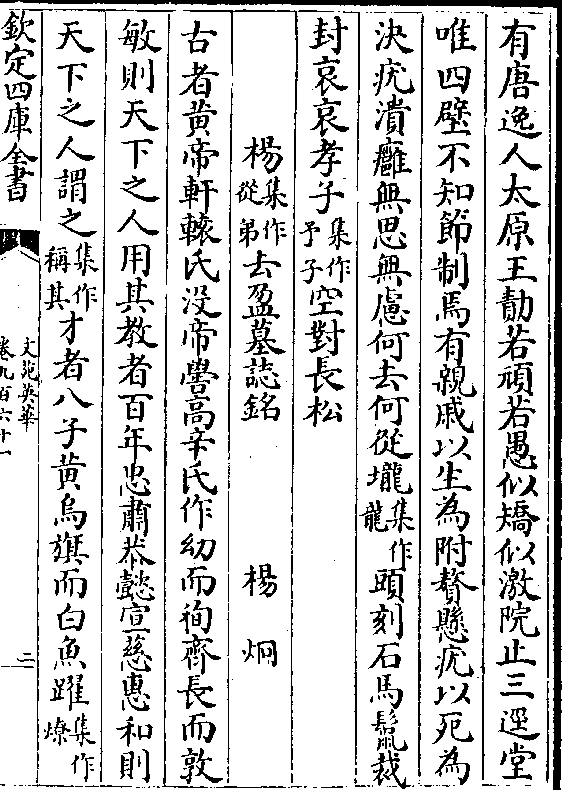 有唐逸人太原王勣若頑若愚似矯似激院止三逕堂
唯四壁不知節制焉有親戚以生為附贅懸疣以死為
決疣潰癰無思無慮何去何從壠集作龍頭刻石馬鬛裁
封哀哀孝子集作予子空對長松
楊集作從弟去盈墓誌銘 楊炯
古者黄帝軒轅氏没帝嚳高辛氏作幼而徇齊長而敦
敏則天下之人用其教者百年忠肅恭懿宣慈惠和則
天下之人謂之集作稱其才者八子黄烏旗而白魚躍集作燎
欽定四庫全書
文苑英華
卷九百六十一
二